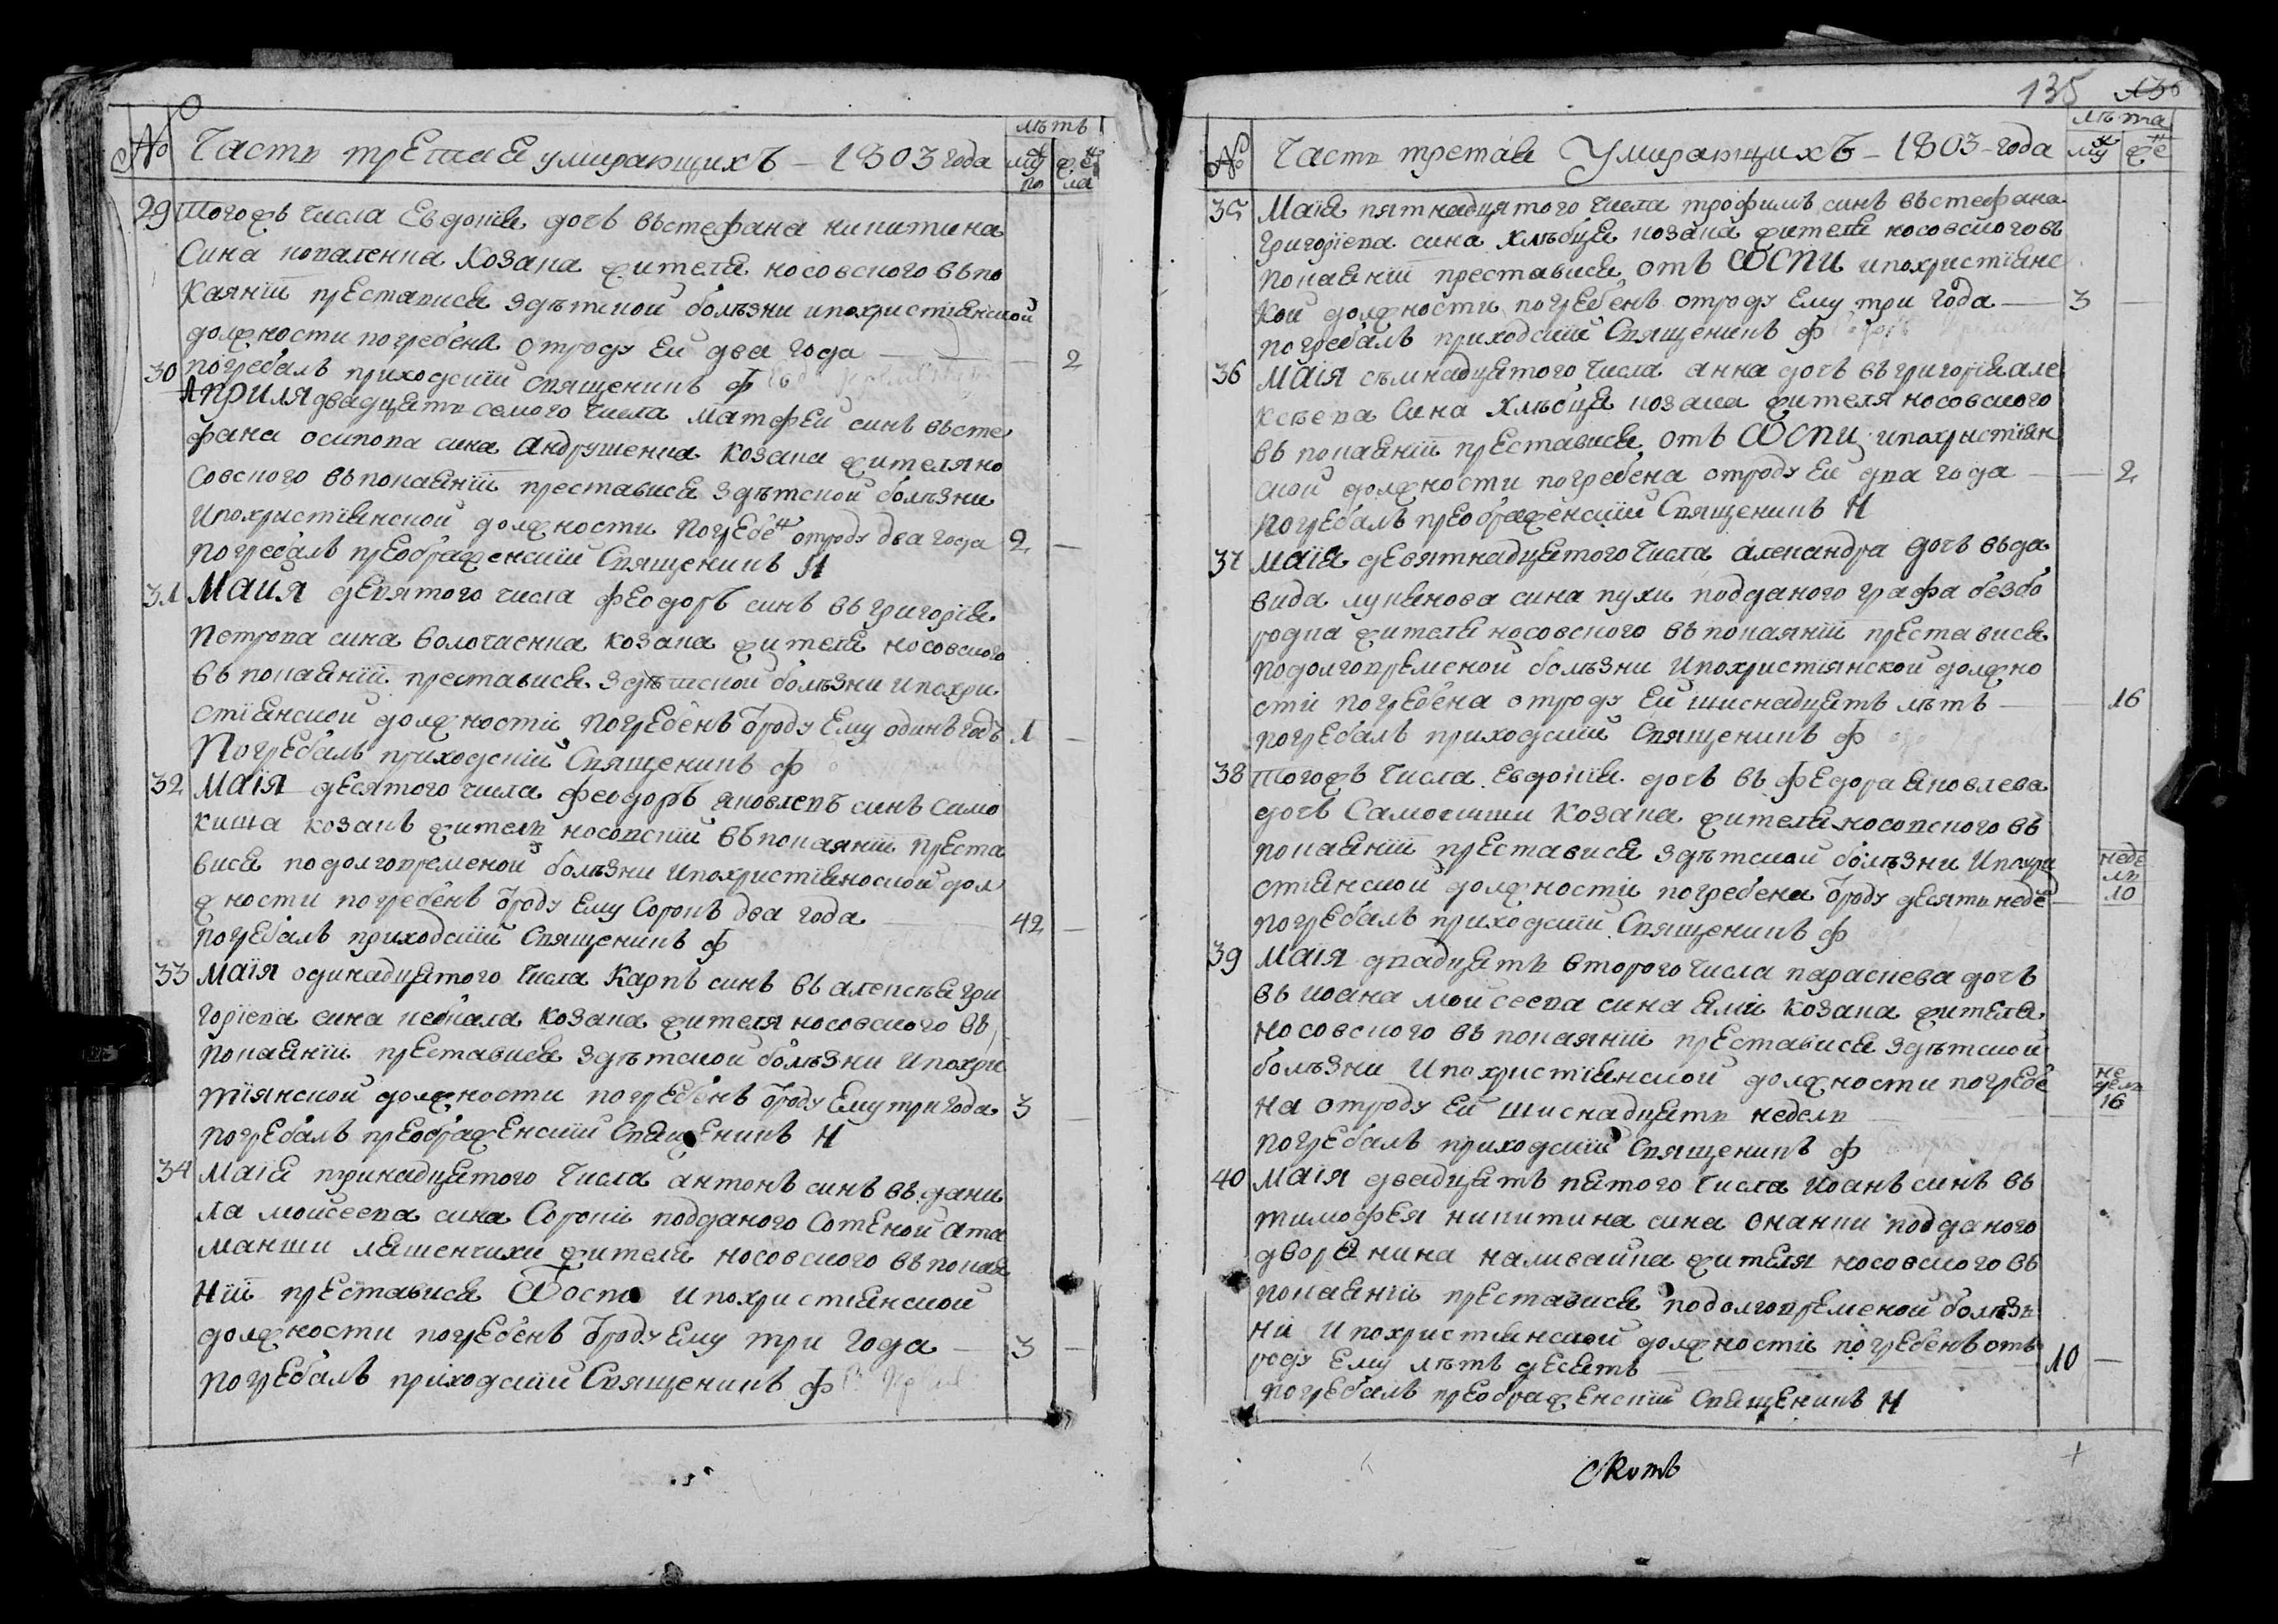 лѣтъ
№ Часть третая умирающихъ – 1803 года му по же ла
29 тогожъ числа Евдокія дочь въ стефана никитина
Сина коваленка Козака жителя носовского въ по
каяніи преставися з дѣтской болѣзни и по христіянской
должности погребена отроду Ей два года — 2
погребалъ приходскій священикъ Ф
30 Априля двадцать семого числа Матфей синъ въ сте
фана осипова сина Андрушенка козака жителя но
совского въ покаяніи преставися з дѣтской болѣзни
и по христіянской должности погребе отроду два года 2 —
погребалъ преображенскій Священикъ Н
31 Маия девятого числа феодоръ синъ въ григорія
Петрова сина волочаенка козака жителя носовского
въ покаяніи преставися з дѣтской болѣзни и по хри
стіянской должности погребенъ ѿроду Ему одинъ годъ 1 —
Погребалъ приходскій Священикъ Ф
32 Маія десятого числа феодоръ яковлевъ синъ само
киша козакъ житель носовскій въ покаяніи преста
вися по долговременой болѣзни и по христіяноской дол
жности погребенъ ѿроду Ему Сорокъ два года 42 —
погребалъ приходскій Священикъ Ф
33 Маія одинадцятого числа Карпъ синъ въ алексѣя гри
горіева сина козака жителя носовского въ
покаяніи преставися з дѣтской болѣзни и по хри
тіянской должности погребенъ ѿроду Ему три года 3 —
погребалъ преображенскій Священикъ Н
34 Маія тринадцятого числа антонъ синъ въ дани
ла моисеева сина Сороки подданого Сотеной ата
манши ляшенчихи жителя носовского въ покая
ніи преставися ѿ оспи и по христіянской
должности погребенъ ѿроду Ему три года — 3 —
погребалъ приходскій Священикъ Ф
135 136
лѣта
№ Часть третая Умирающихъ – 1803 – года му же
35 Маія пятнадцятого числа трофимъ синъ въ стефана
Григоріева сина Хлѣбця козака жителя носовского въ
покаяніи преставися отъ ѿспи и по христіянс
кой должности погребенъ отроду Ему три года — 3 —
погребалъ приходскій Священикъ Ф
36 Маія сѣмнадцятого числа анна дочь въ григорія але
ксѣева Сина Хлѣбця козака жителя носовского
въ покаяніи преставися отъ ѿспи и по христіян
ской должности погребена отроду Ей два года — 2
погребалъ преображенскій Священикъ Н
37 Маія девятнадцятого числа александра дочь въ да
вида лукянова сина пухи подданого графа безбо
родка жителя носовского въ покаяніи преставися
по долговременой болѣзни и по христіянской должно
сти погребена отроду Ей шиснадцять лѣтъ — 16
погребалъ приходскій Священикъ Ф
38 тогожъ числа Евдокія дочь въ федора яковлева
дочь Самокиши Козака жителя носовского въ
покаяніи преставися з дѣтской болѣзни и по хри
стіянской должности погребена ѿроду десять неде — неде ль 10
погребалъ приходскій Священикъ Ф
39 Маія двадцять второго числа параскева дочь
въ иоана моисеева сина ялиі козака жителя
носовского въ покаяніи преставися з дѣтской
болѣзни и по христіянской должности погребе
на отроду Ей шиснадцять недель — не дель 16
погребалъ приходскій Священикъ Ф
40 Маія двадцять пятого числа иоанъ синъ въ
тимофея никитина сина онанки подданого
дворянина наливайка жителя носовского въ
покаяніи преставися по долговременой болѣз
ни и по христіянской должности погребенъ отъ
роду Ему лѣтъ десять — 10 —
погребалъ преображенскій Священикъ Н